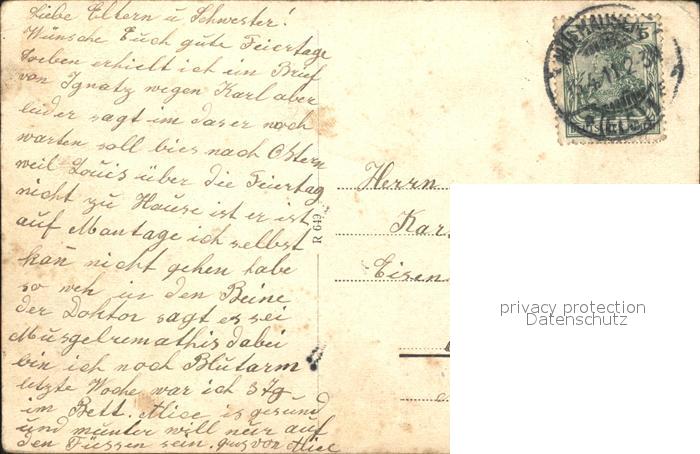 Liebe Eltern u Schwester!
Wünsche Euch gute Feiertage
Soeben erhielt ich im Brief
von Ignatz wegen Karl aber
leider sagt im das er noch
warten soll bies nach Ostern
weil Louis über die Feiertag
nicht zu Hause ist er ist
auf Montage ich selbst
kan̄ nicht gehen habe
so weh in den Beine
der Doktor sagt es sei
Musgelremathis dabei
bin ich noch Blutarm
letzte Woche war ich 3 Tg
im Bett. Alice is gesund
und munter will nur auf
den Füssen sein. gus von Alice
Herrn
Kar
Eisen
R 649
MÜLHAUSEN
(ELS.)
privacy protection
Datenschutz